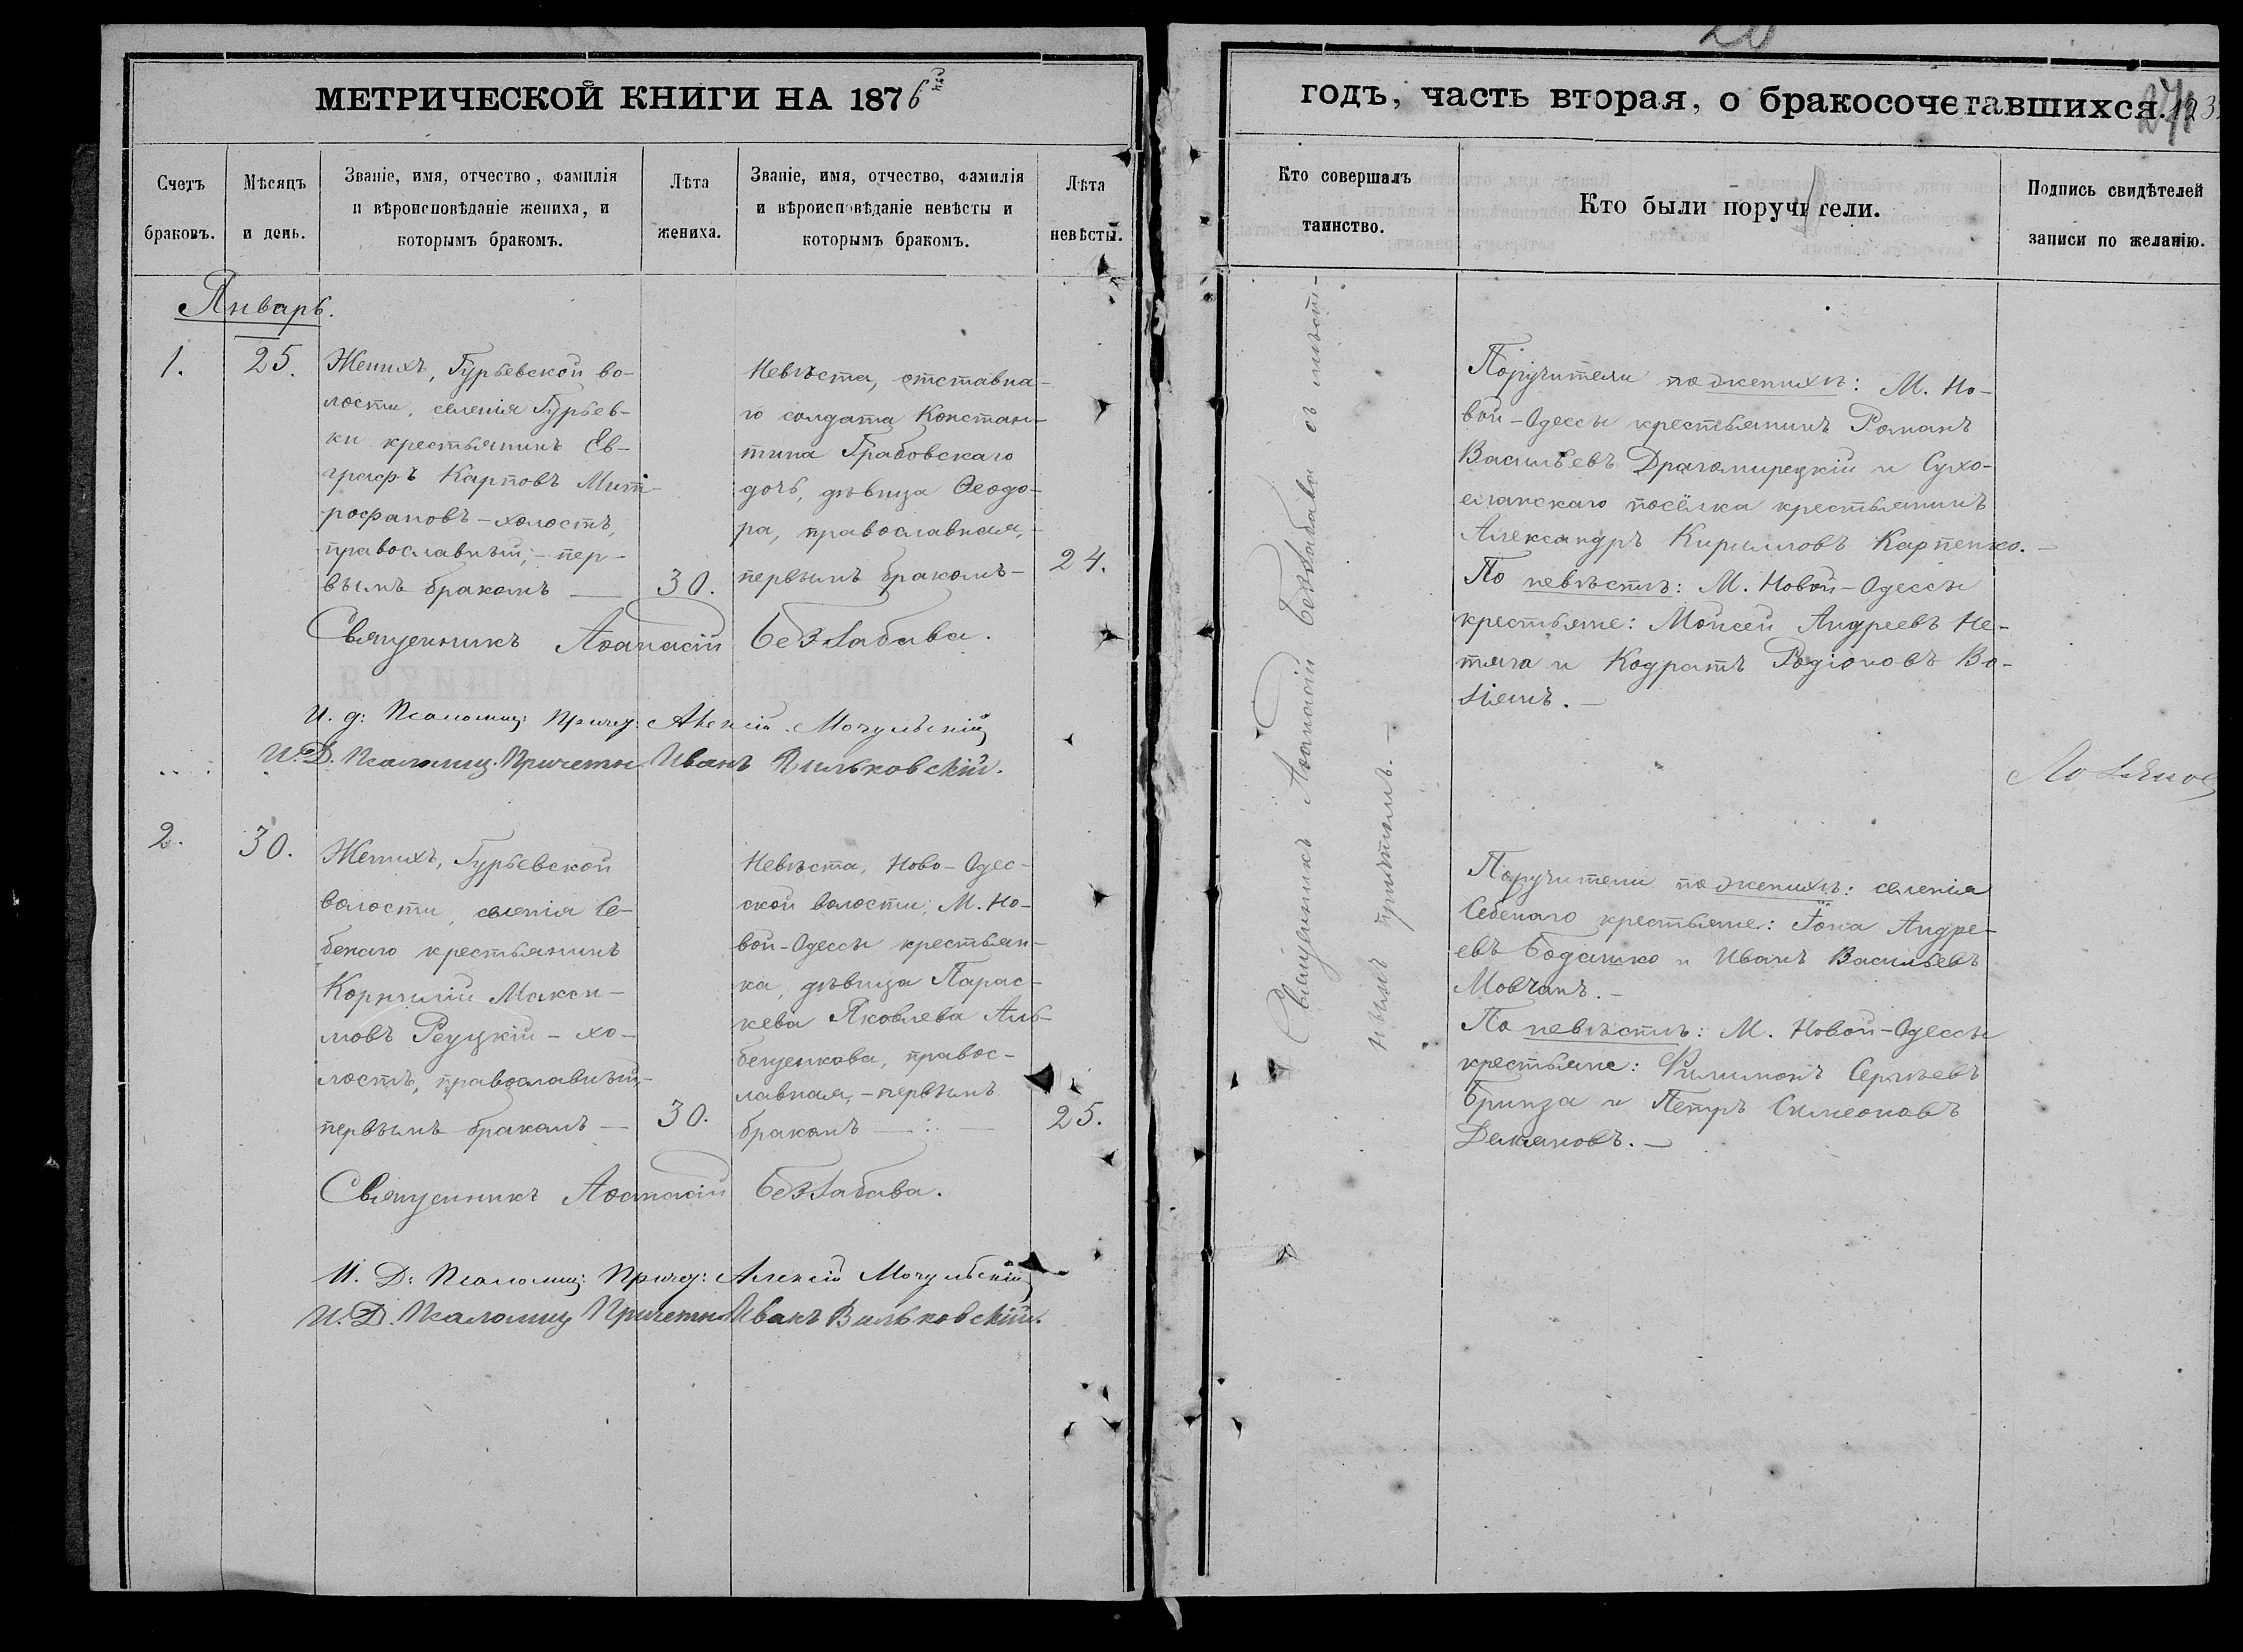 МЕТРИЧЕСКОЙ КНИГИ НА 1876й
Счетъ браковъ.
Мѣсяцъ и день.
Званіе, имя, отчество, фамилія
и вѣроисповѣданіе жениха, и
которымъ бракомъ.
Лѣта
жениха.
Званіе, имя, отчество, фамилія
и вѣроисповѣданіе невѣсты и
которымъ бракомъ.
Лѣта
невѣсты.
Январь.
1.
25.
Женихъ, Гурьевской во-
лости, селенія Гурьев-
ки крестьянинъ Ев-
графъ Карповъ Мит-
рофановъ - холостъ,
православный, - пер-
вымъ бракомъ —
30.
Невѣста, отставна-
го солдата Констан-
тина Грабовскаго
дочь, дѣвица Ѳеодо-
ра, православная, -
первымъ бракомъ -
24.
Священникъ Аѳанасій Беззабава.
И. д: Псаломщ: Причет: Алексій Мочульскій
И. Д. Псаломщ. Причетн Иванъ Вильковскій.
2.
30.
Женихъ, Гурьевской
волости, селенія Се-
бенаго крестьянинъ
Корнилій Макси-
мовъ Реуцкій - хо-
лостъ, православный,-
первымъ бракомъ —
30.
Невѣста, Ново-Одес-
ской волости, М. Но-
вой-Одессы крестьян-
ка, дѣвица Парас-
кева Яковлева Аль-
бещенкова, правос-
лавная, - первымъ
бракомъ —:—
25.
Священникъ Аѳанасій Беззабава.
И. Д: Псаломщ: Причет: Алексій Мочульскій
И. Д. Псаломщ Причетн Иванъ Вильковскій.
20
годъ, часть вторая, о бракосочетавшихся.
Кто совершалъ
таинство.
Кто были поручители.
Подпись свидѣтелей
записи по желанію.
Священникъ Аѳанасій Беззабава съ мѣст-
нымъ причтомъ. —
Поручители по женихѣ: М. Но-
вой-Одессы крестьянинъ Романъ
Васильевъ Драгомирецкій и Сухо-
еланскаго посёлка крестьянинъ
Александръ Кирилловъ Карпенко. —
По невѣстѣ: М. Новой-Одессы
крестьяне: Моисей Андреевъ Не-
тяга и Кодратъ Родіоновъ Во-
Поручители по женихѣ: селенія
Себенаго крестьяне: Іона Андре-
евъ Бодашко и Иванъ Васильевъ
Мовчанъ. —
По невѣстѣ: М. Новой-Одессы
крестьяне: Филимонъ Сергѣевъ
Бринза и Петръ Симеоновъ
Демановъ. —